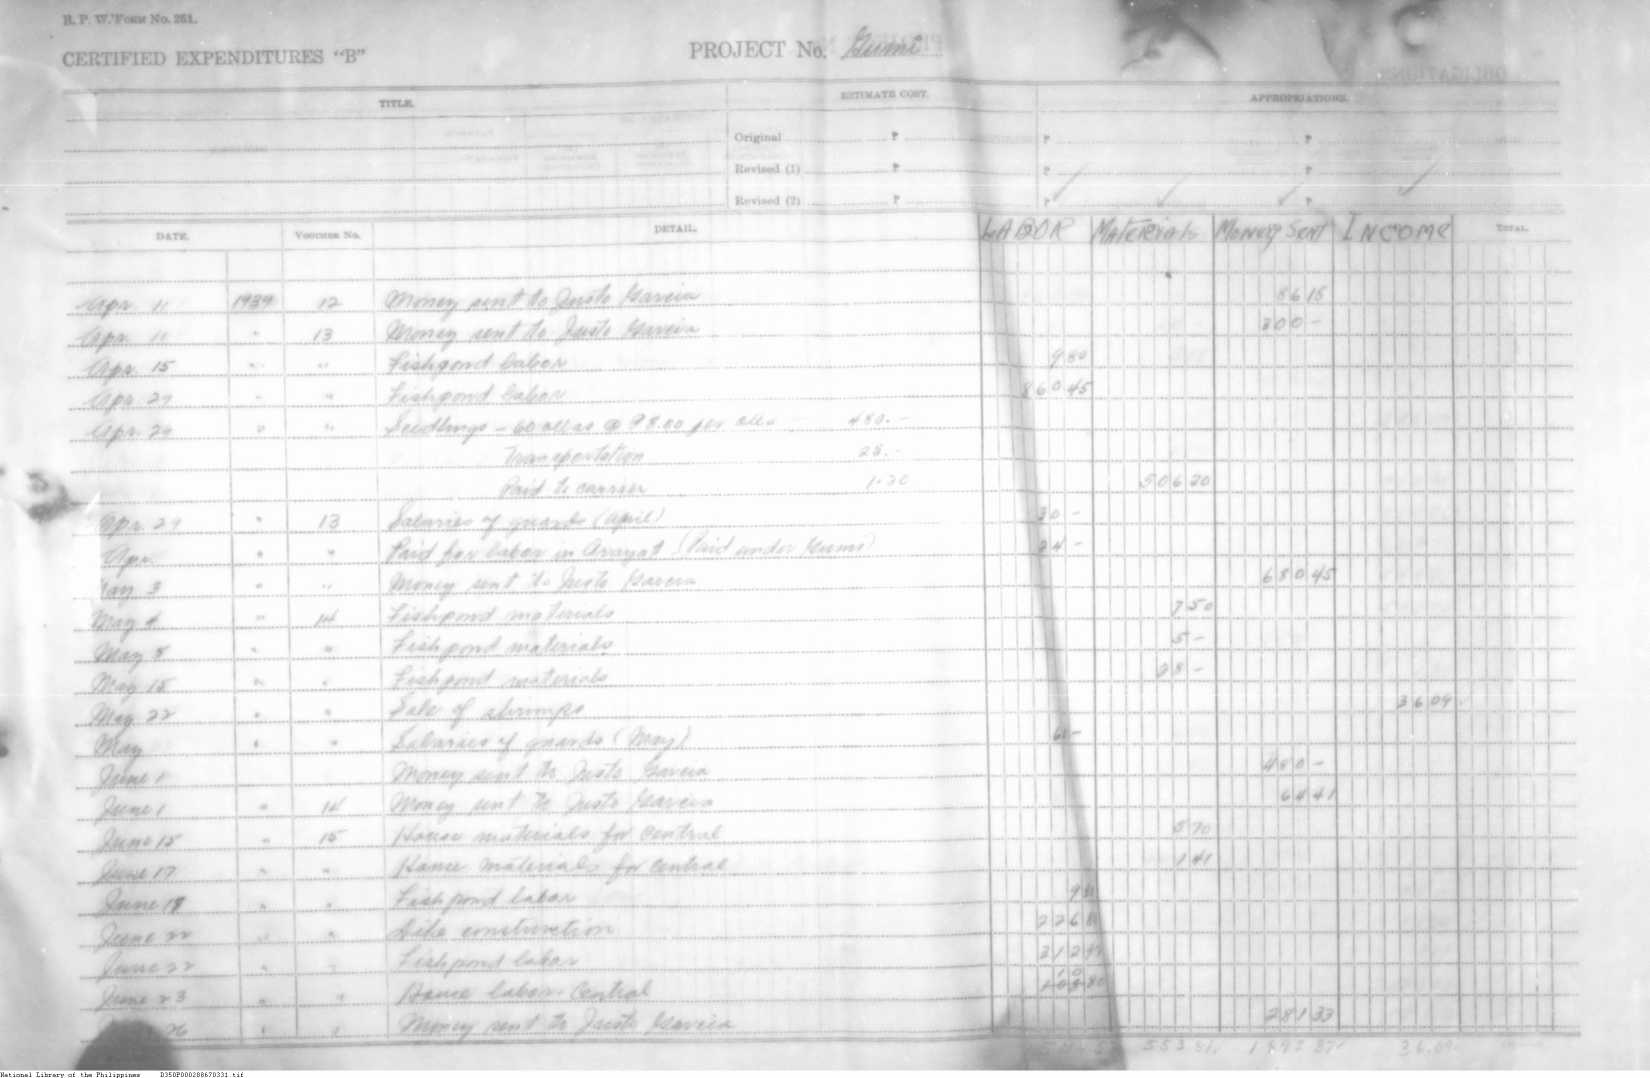 B. P. W. Form No. 261.
CERTIFIED EXPENDITURES "B" PROJECT No. Gumi
TITLE. ESTIMATE COST. APPROPRIATIONS.
Original ₱ ₱ ₱
Revised (1) ₱ ₱ ₱
Revised (2) ₱ ₱ ₱
DATE. VOUCHER No. DETAIL. LABOR Materials Money Sent INCOME TOTAL.
Apr. 11 1939 12 Money sent to Justo Garcia 8615
Apr. 11 " 13 Money sent to Justo Garcia 300 -
Apr. 15 " " Fishpond labor 980
Apr. 29 " " Fishpond labor 860 45
Apr. 29 " " Seedlings - 60 ollas @ ₱8.00 per olla 480. -
Transportation 25. -
Paid to carrier 1.20 506 20
Apr. 29 " 13 Salaries of guards (April) 30 -
Apr. " " Paid for labor in Arayat (Paid under Gumi) 24 -
May 3 " " Money sent to Justo Garcia 680 45
May 4 " 14 Fishpond materials 7 50
May 8 " " Fishpond materials 5 -
May 15 " " Fishpond materials 28 -
May 22 " " Sale of shrimps 36 09
May " " Salaries of guards (May) 60 -
June 1 Money sent to Justo Garcia 480 -
June 1 " 14 Money sent to Justo Garcia 64 41
June 15 " 15 House materials for central 5 70
June 17 " " House materials for central 1 41
June 18 " " Fishpond labor
June 22 " " Dike construction 226
June 22 " " Fishpond labor 212
June 23 " " House labor Central
26 " " Money sent to Justo Garcia 281 33
553 81 1892 37 36.09
National Library of the Philippines D350P000208670331.tif